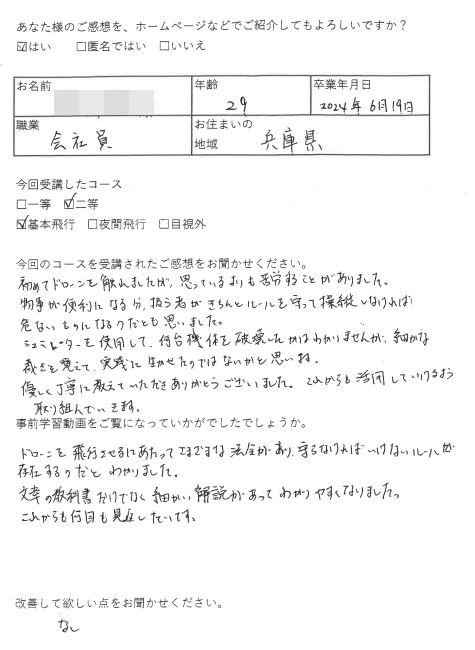 あなた様のご感想を、ホームページなどでご紹介してもよろしいですか？
☑はい ☐匿名ではい ☐いいえ
お名前 年齢 29 卒業年月日 2024年6月19日
職業 会社員 お住まいの地域 兵庫県
今回受講したコース
☐一等 ☑二等
☑基本飛行 ☐夜間飛行 ☐目視外
今回のコースを受講されたご感想をお聞かせください。
初めてドローンを触れましたが、思っているよりも苦労することがありました。
物事が便利になる分、扱う者がきちんとルールを守って操縦しなければ
危ないものになるのだとも思いました。
シュミレーターを使用して、何台機体を破壊したかはわかりませんが、細かな
動きを覚えて、実践に生かせたのではないかと思います。
優しく丁寧に教えていただきありがとうございました。これからも活用していけるよう
取り組んでいきます。
事前学習動画をご覧になっていかがでしたでしょうか。
ドローンを飛行させるにあたってさまざまな法令があり、守らなければいけないルールが
存在するのだとわかりました。
文章の教科書だけでなく細かい解説があってわかりやすくなりました。
これからも何回も見直したいです。
改善して欲しい点をお聞かせください。
なし